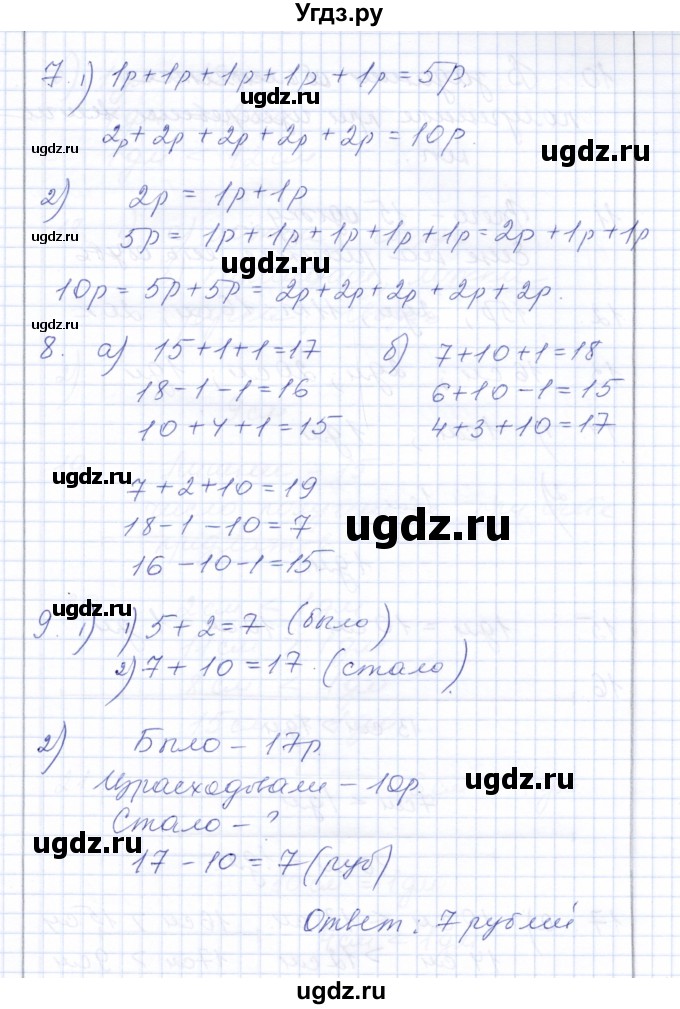 Угдз.ру
7. 1) 1р+1р+1р+1р+1р=5р
ugdz.ru
2р+2р+2р+2р+2р=10р.
ugdz.ru
ugdz.ru
2) 2р=1р+1р
5р=1р+1р+1р+1р+1р=2р+1р+1р
ugdz.ru
ugdz.ru
10р=5р+5р=2р+2р+2р+2р+2р.
ugdz.ru
8. а) 15+1+1=17 б) 7+10+1=18
18-1-1=16 6+10-1=15
10+4+1=15 4+3+10=17
ugdz.ru
7+2+10=19
18-1-10=7
ugdz.ru
16-10-1=15
ugdz.ru
9. 1) 1) 5+2=7 (было)
2) 7+10=17 (стало).
2) Было - 17р
Израсходовали - 10р.
ugdz.ru
Стало - ?
ugdz.ru
17-10=7 (руб)
Ответ: 7 рублей
ugdz.ru